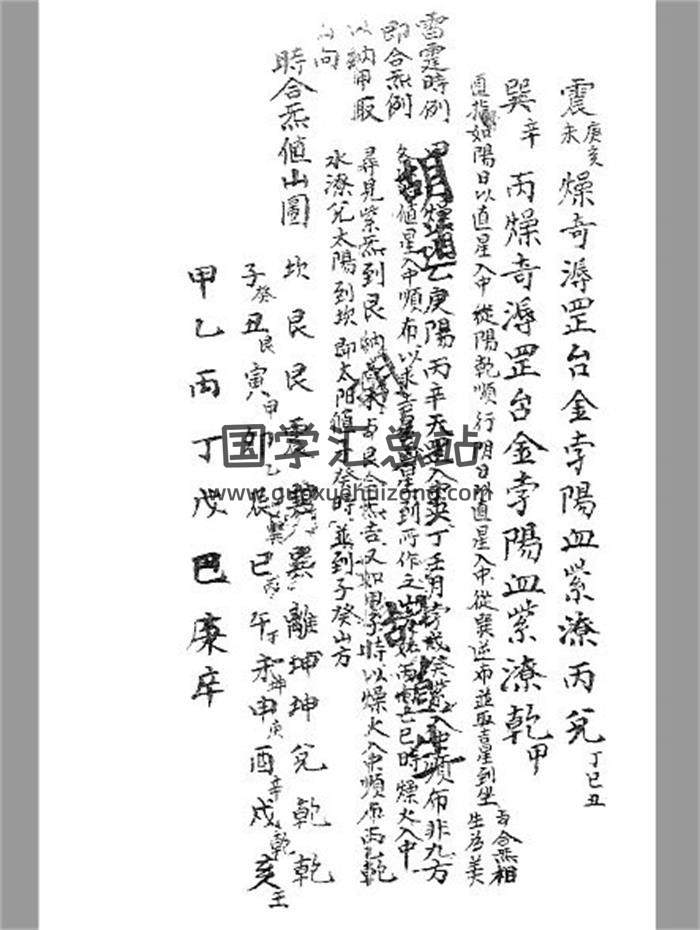 震庚亥未燥奇溽罡台金孛陽血紫潦丙兌丁巳丑
巽辛丙燥奇溽罡台金孛陽血紫潦乾甲
直指如陽日以直星入中從陽乾順行陰日以直星入中從巽逆布並取吉星到坐
與合炁相生為美
雷霆時例
即合炁例
以納甲取
向
乙庚陽丙辛天罡入丁壬月孛戊癸紫入中順布非九方
值星入中順布以求吉星到所作之巳時燥火入中
尋見紫炁到艮納與艮合炁吉又如甲子時以燥火入中順布丙乾
水潦兌太陽到坎即太阳值子癸時並到子癸山方
時合炁值山圖
坎艮艮震巽巽離坤坤兌乾乾
子癸丑艮寅甲卯乙辰巽巳丙午丁未坤申庚酉辛戌乾亥壬
甲乙丙丁戊巳庚辛
国学汇总站
www.guoxuehuizong.com